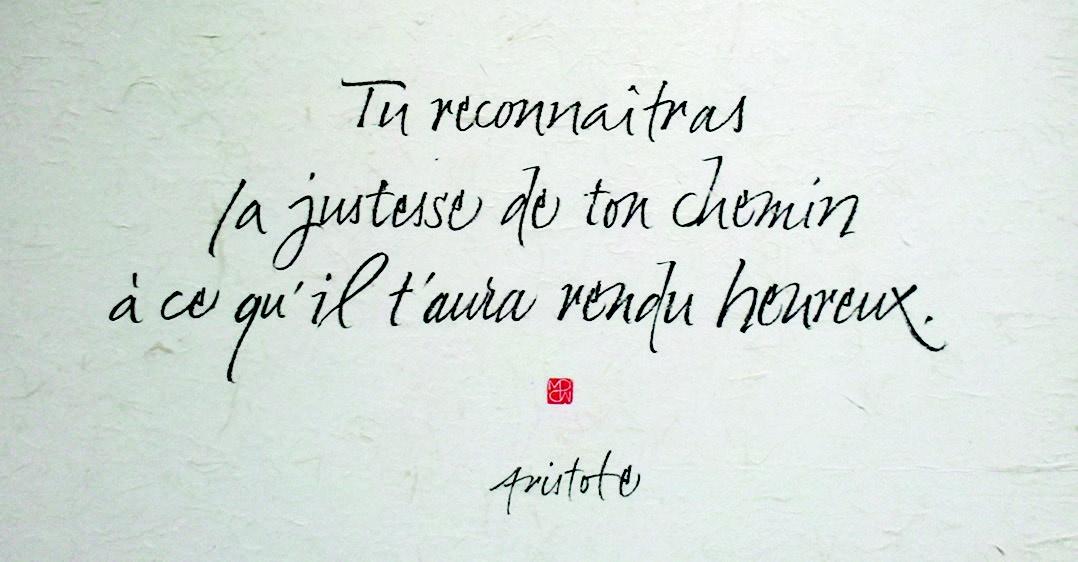 Tu reconnaîtras
la justesse de ton chemin
à ce qu'il t'aura rendu heureux.
Aristote